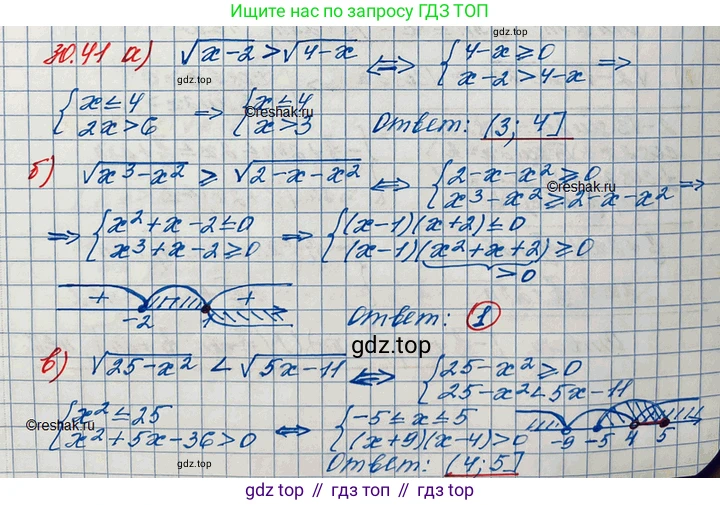 Ищите по запросу ГДЗ ТОП
30.41 а) √x-2 > √4-x ⇔ { 4-x ≥ 0
x-2 > 4-x ⇒
gdz.top
{ x ≤ 4
2x > 6 ⇒ { x ≤ 4
x > 3 Ответ: (3; 4]
©reshak.ru
б) √x³-x² ≥ √2-x-x² ⇔ { 2-x-x² ≥ 0
x³-x² ≥ 2-x-x² ⇒
©reshak.ru
⇒ { x²+x-2 ≤ 0
x³+x-2 ≥ 0 ⇒ { (x-1)(x+2) ≤ 0
(x-1)(x²+x+2) ≥ 0
>0
+ +
-2 1 Ответ: 1
gdz.top
в) √25-x² < √5x-11 ⇔ { 25-x² ≥ 0
25-x² < 5x-11
{ x² ≤ 25
x²+5x-36 > 0 ⇔ { -5 ≤ x ≤ 5
(x+9)(x-4) > 0
©reshak.ru
-9 -5 4 5
gdz.top
Ответ: (4; 5]
gdz top // гдз топ // gdz top